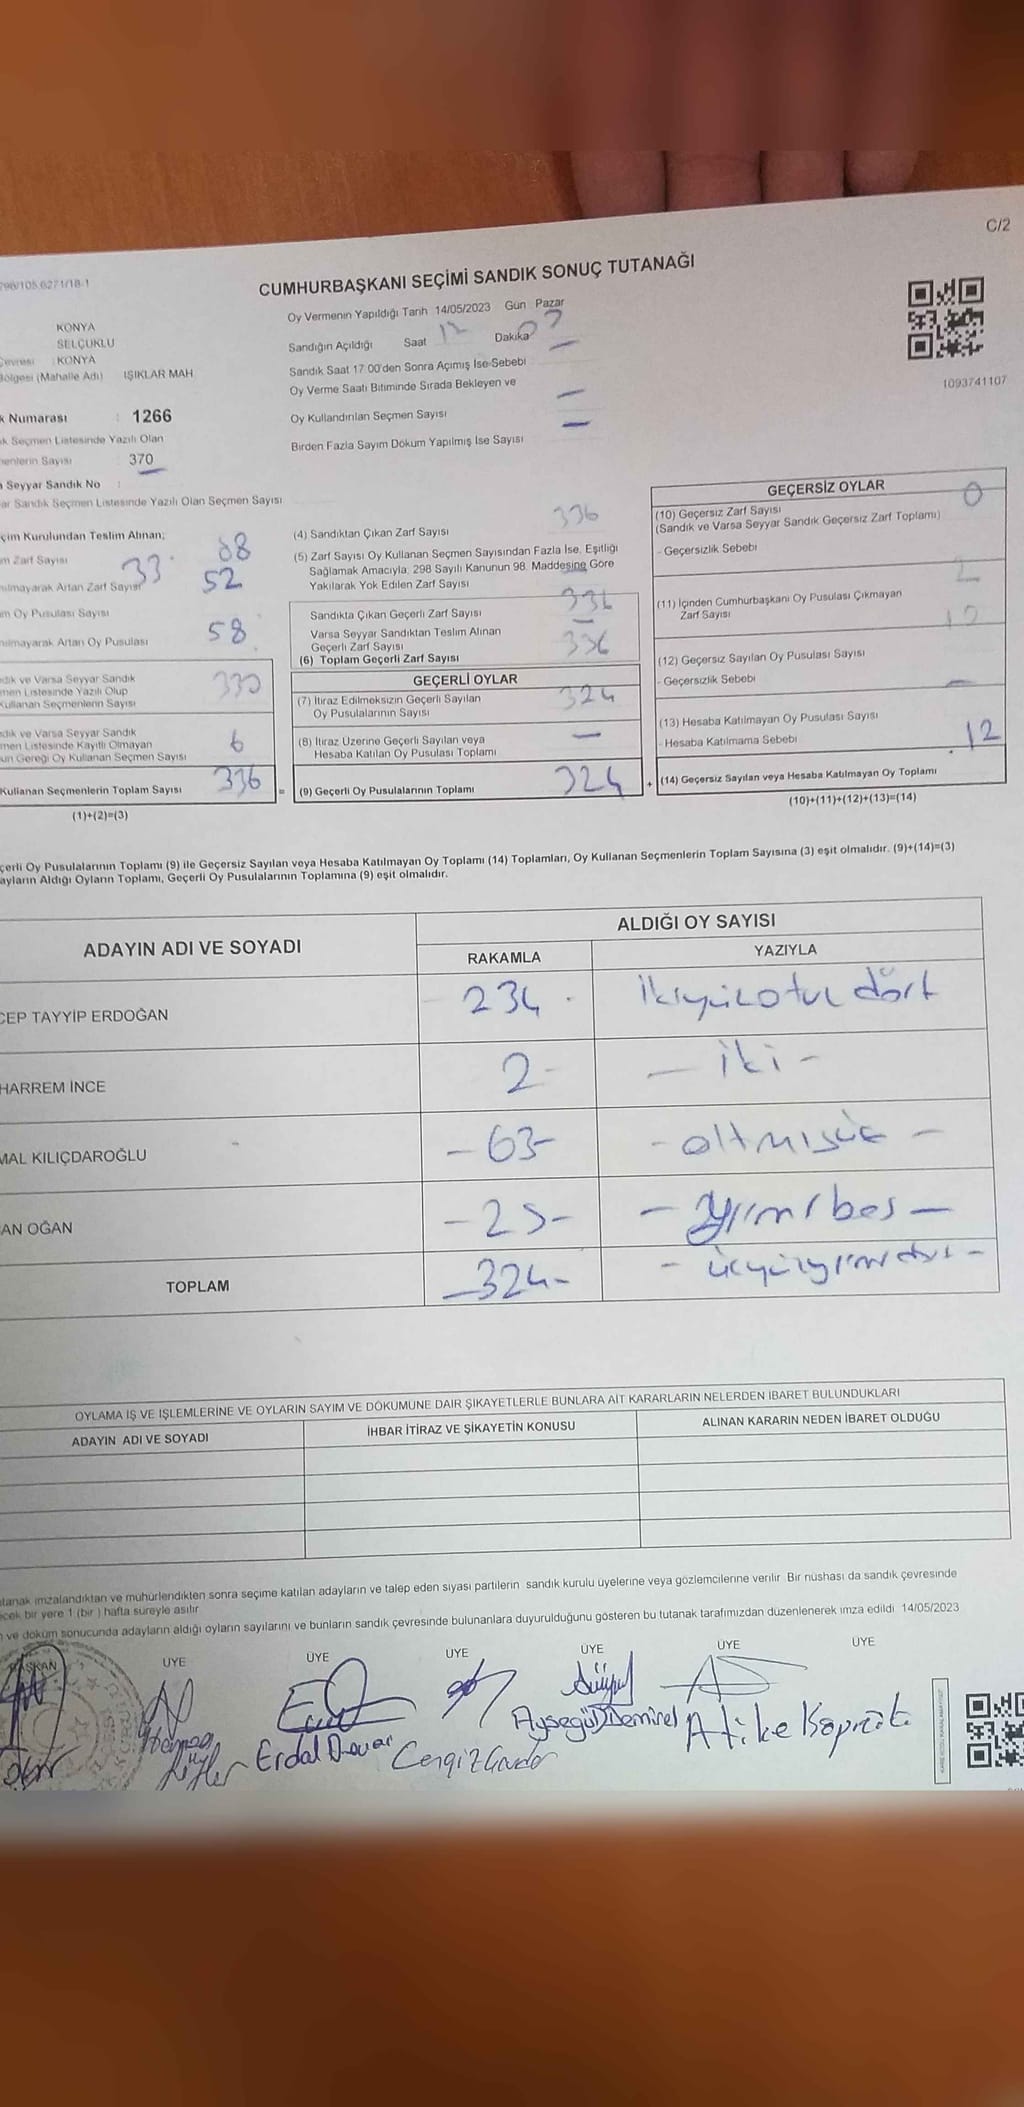 C/2
CUMHURBAŞKANI SEÇİMİ SANDIK SONUÇ TUTANAĞI
Oy Vermenin Yapıldığı Tarih 14/05/2023 Gün Pazar
KONYA
SELÇUKLU
Çevresi : KONYA
Bölgesi (Mahalle Adı) IŞIKLAR MAH
Sandığın Açıldığı Saat Dakika
Sandık Saat 17:00'den Sonra Açımış İse Sebebi
Oy Verme Saati Bitiminde Sırada Bekleyen ve
Oy Kullandırılan Seçmen Sayısı
Birden Fazla Sayım Döküm Yapılmış İse Sayısı
1093741107
k Numarası : 1266
k Seçmen Listesinde Yazılı Olan
menlerin Sayısı 370
Seyyar Sandık No :
ar Sandık Seçmen Listesinde Yazılı Olan Seçmen Sayısı
çim Kurulundan Teslim Alınan;
m Zarf Sayısı
nılmayarak Artan Zarf Sayısı 52
m Oy Pusulası Sayısı
nılmayarak Artan Oy Pusulası 58
dık ve Varsa Seyyar Sandık
men Listesinde Yazılı Olup
Kullanan Seçmenlerin Sayısı 330
dık ve Varsa Seyyar Sandık
men Listesinde Kayıtlı Olmayan
un Gereği Oy Kullanan Seçmen Sayısı 6
Kullanan Seçmenlerin Toplam Sayısı 336 =
(1)+(2)=(3)
(4) Sandıktan Çıkan Zarf Sayısı 336
(5) Zarf Sayısı Oy Kullanan Seçmen Sayısından Fazla İse, Eşitliği
Sağlamak Amacıyla, 298 Sayılı Kanunun 98. Maddesine Göre
Yakılarak Yok Edilen Zarf Sayısı
Sandıkta Çıkan Geçerli Zarf Sayısı 336
Varsa Seyyar Sandıktan Teslim Alınan
Geçerli Zarf Sayısı -
(6) Toplam Geçerli Zarf Sayısı 336
GEÇERLİ OYLAR
(7) İtiraz Edilmeksizin Geçerli Sayılan 324
Oy Pusulalarının Sayısı
(8) İtiraz Üzerine Geçerli Sayılan veya -
Hesaba Katılan Oy Pusulası Toplamı
(9) Geçerli Oy Pusulalarının Toplamı 324 +
GEÇERSİZ OYLAR
(10) Geçersiz Zarf Sayısı 0
(Sandık ve Varsa Seyyar Sandık Geçersiz Zarf Toplamı)
- Geçersizlik Sebebi
(11) İçinden Cumhurbaşkanı Oy Pusulası Çıkmayan 2
Zarf Sayısı
(12) Geçersiz Sayılan Oy Pusulası Sayısı
- Geçersizlik Sebebi
(13) Hesaba Katılmayan Oy Pusulası Sayısı -
- Hesaba Katılmama Sebebi
(14) Geçersiz Sayılan veya Hesaba Katılmayan Oy Toplamı 12
(10)+(11)+(12)+(13)=(14)
çerli Oy Pusulalarının Toplamı (9) ile Geçersiz Sayılan veya Hesaba Katılmayan Oy Toplamı (14) Toplamları, Oy Kullanan Seçmenlerin Toplam Sayısına (3) eşit olmalıdır. (9)+(14)=(3)
ayların Aldığı Oyların Toplamı, Geçerli Oy Pusulalarının Toplamına (9) eşit olmalıdır.
ADAYIN ADI VE SOYADI ALDIĞI OY SAYISI
RAKAMLA YAZIYLA
CEP TAYYİP ERDOĞAN 234 İkiyüzotuz dört
HARREM İNCE 2- - İki -
MAL KILIÇDAROĞLU -63- - altmışüç -
AN OĞAN -25- - yirmibeş -
TOPLAM -324- - üçyüzyirmidört -
OYLAMA İŞ VE İŞLEMLERİNE VE OYLARIN SAYIM VE DÖKÜMÜNE DAİR ŞİKAYETLERLE BUNLARA AİT KARARLARIN NELERDEN İBARET BULUNDUKLARI
ADAYIN ADI VE SOYADI İHBAR İTİRAZ VE ŞİKAYETİN KONUSU ALINAN KARARIN NEDEN İBARET OLDUĞU
tanak imzalandıktan ve mühürlendikten sonra seçime katılan adayların ve talep eden siyasi partilerin sandık kurulu üyelerine veya gözlemcilerine verilir. Bir nüshası da sandık çevresinde
cek bir yere 1 (bir) hafta süreyle asılır
ve döküm sonucunda adayların aldığı oyların sayılarını ve bunların sandık çevresinde bulunanlara duyurulduğunu gösteren bu tutanak tarafımızdan düzenlenerek imza edildi 14/05/2023
ŞKAN ÜYE ÜYE ÜYE ÜYE ÜYE ÜYE
Erdal Cengiz Ayşegül Demirel Atike